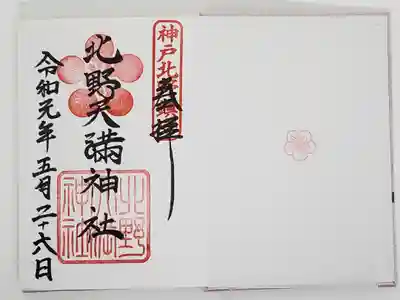 神戸北
奉拝
北野天満神社
北野
神社
令和元年五月二十六日